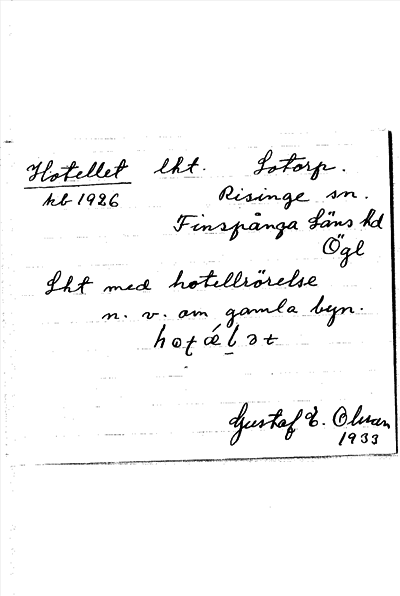 Hotellet lht. Lotorp.
kb 1926 Risinge sn.
Finspånga Läns hd
Ögl
Lht med hotellrörelse
n. v. om gamla byn.
Gustaf E. Olsson
1933